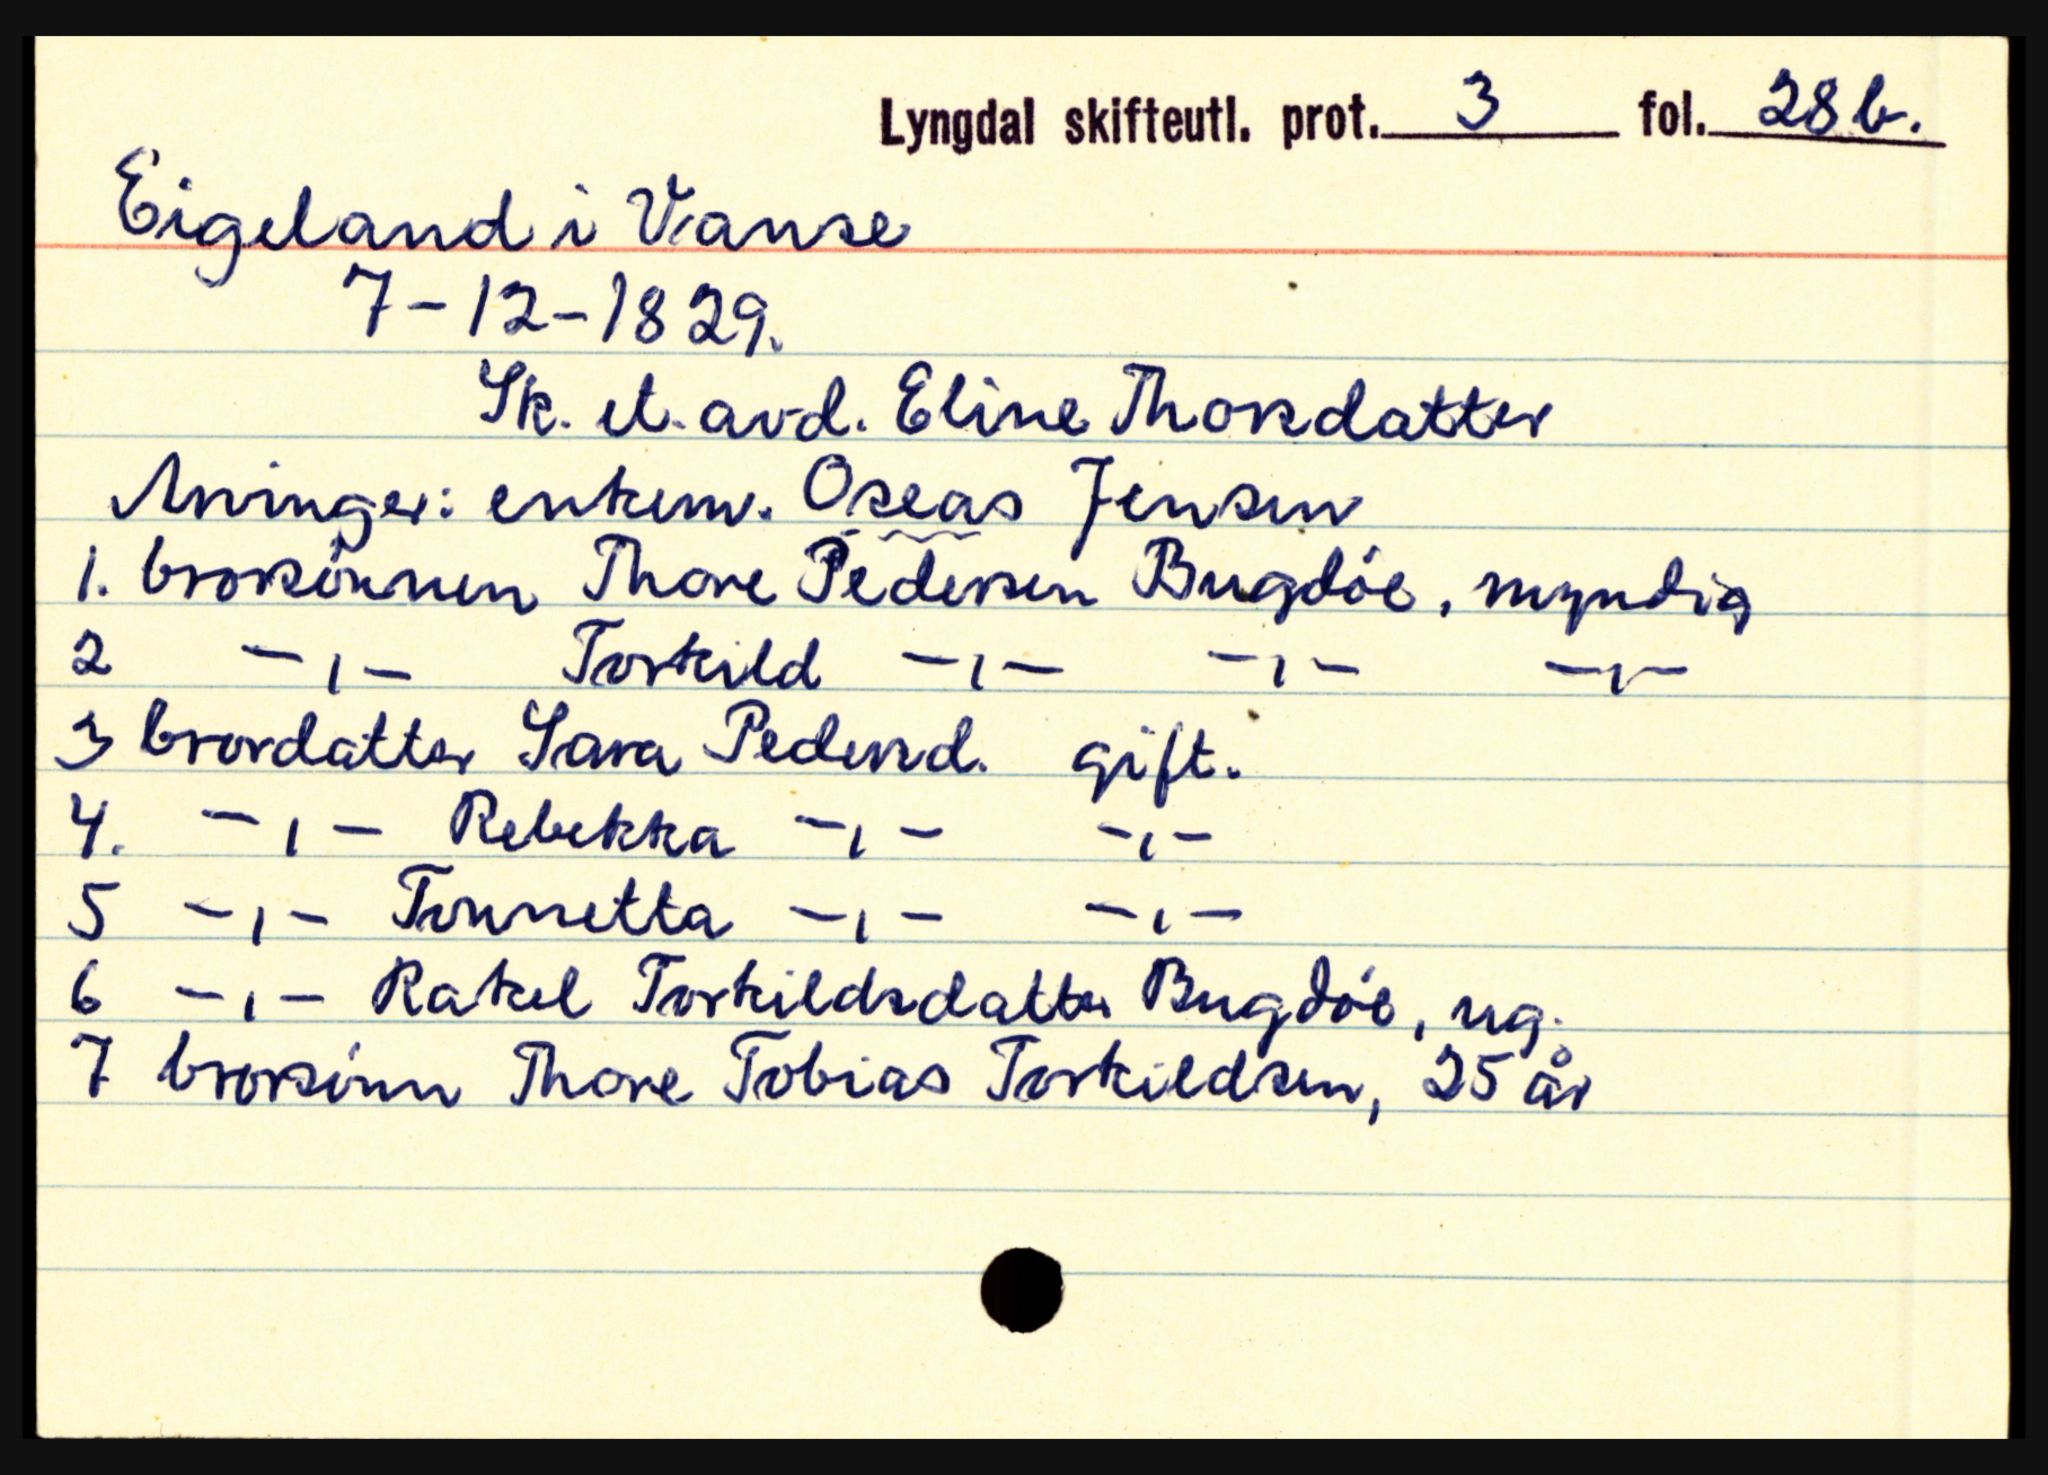 Lyngdal skifteutl. prot. 3 fol. 28 b.
Eigeland i Vanse
7-12-1829.
Sk. et. avd. Eline Thorsdatter
Arvinger: enkem. Oseas Jensen
1. brorsønnen Thore Pedersen Bugdøe, myndig
2 -"- Torkild -"- -"- -"-
3 brordatter Sara Pedersd. gift.
4. -"- Rebekka -"- -"-
5 -"- Tonnetta -"- -"-
6 -"- Rakel Torkildsdatter Bugdøe, ug.
7 brorsønn Thore Tobias Torkildsen, 25 år